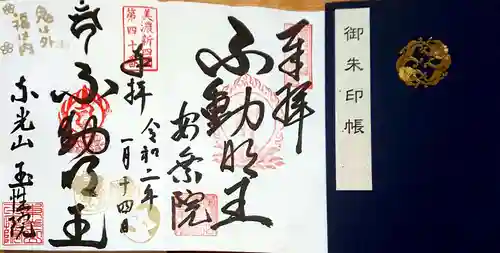 御朱印帳
奉拝
不動明王
安楽院
美濃新四国
第四十七
奉拝
令和二年
一月十四日
不動明王
東光山
玉性院
鬼は外
福は内